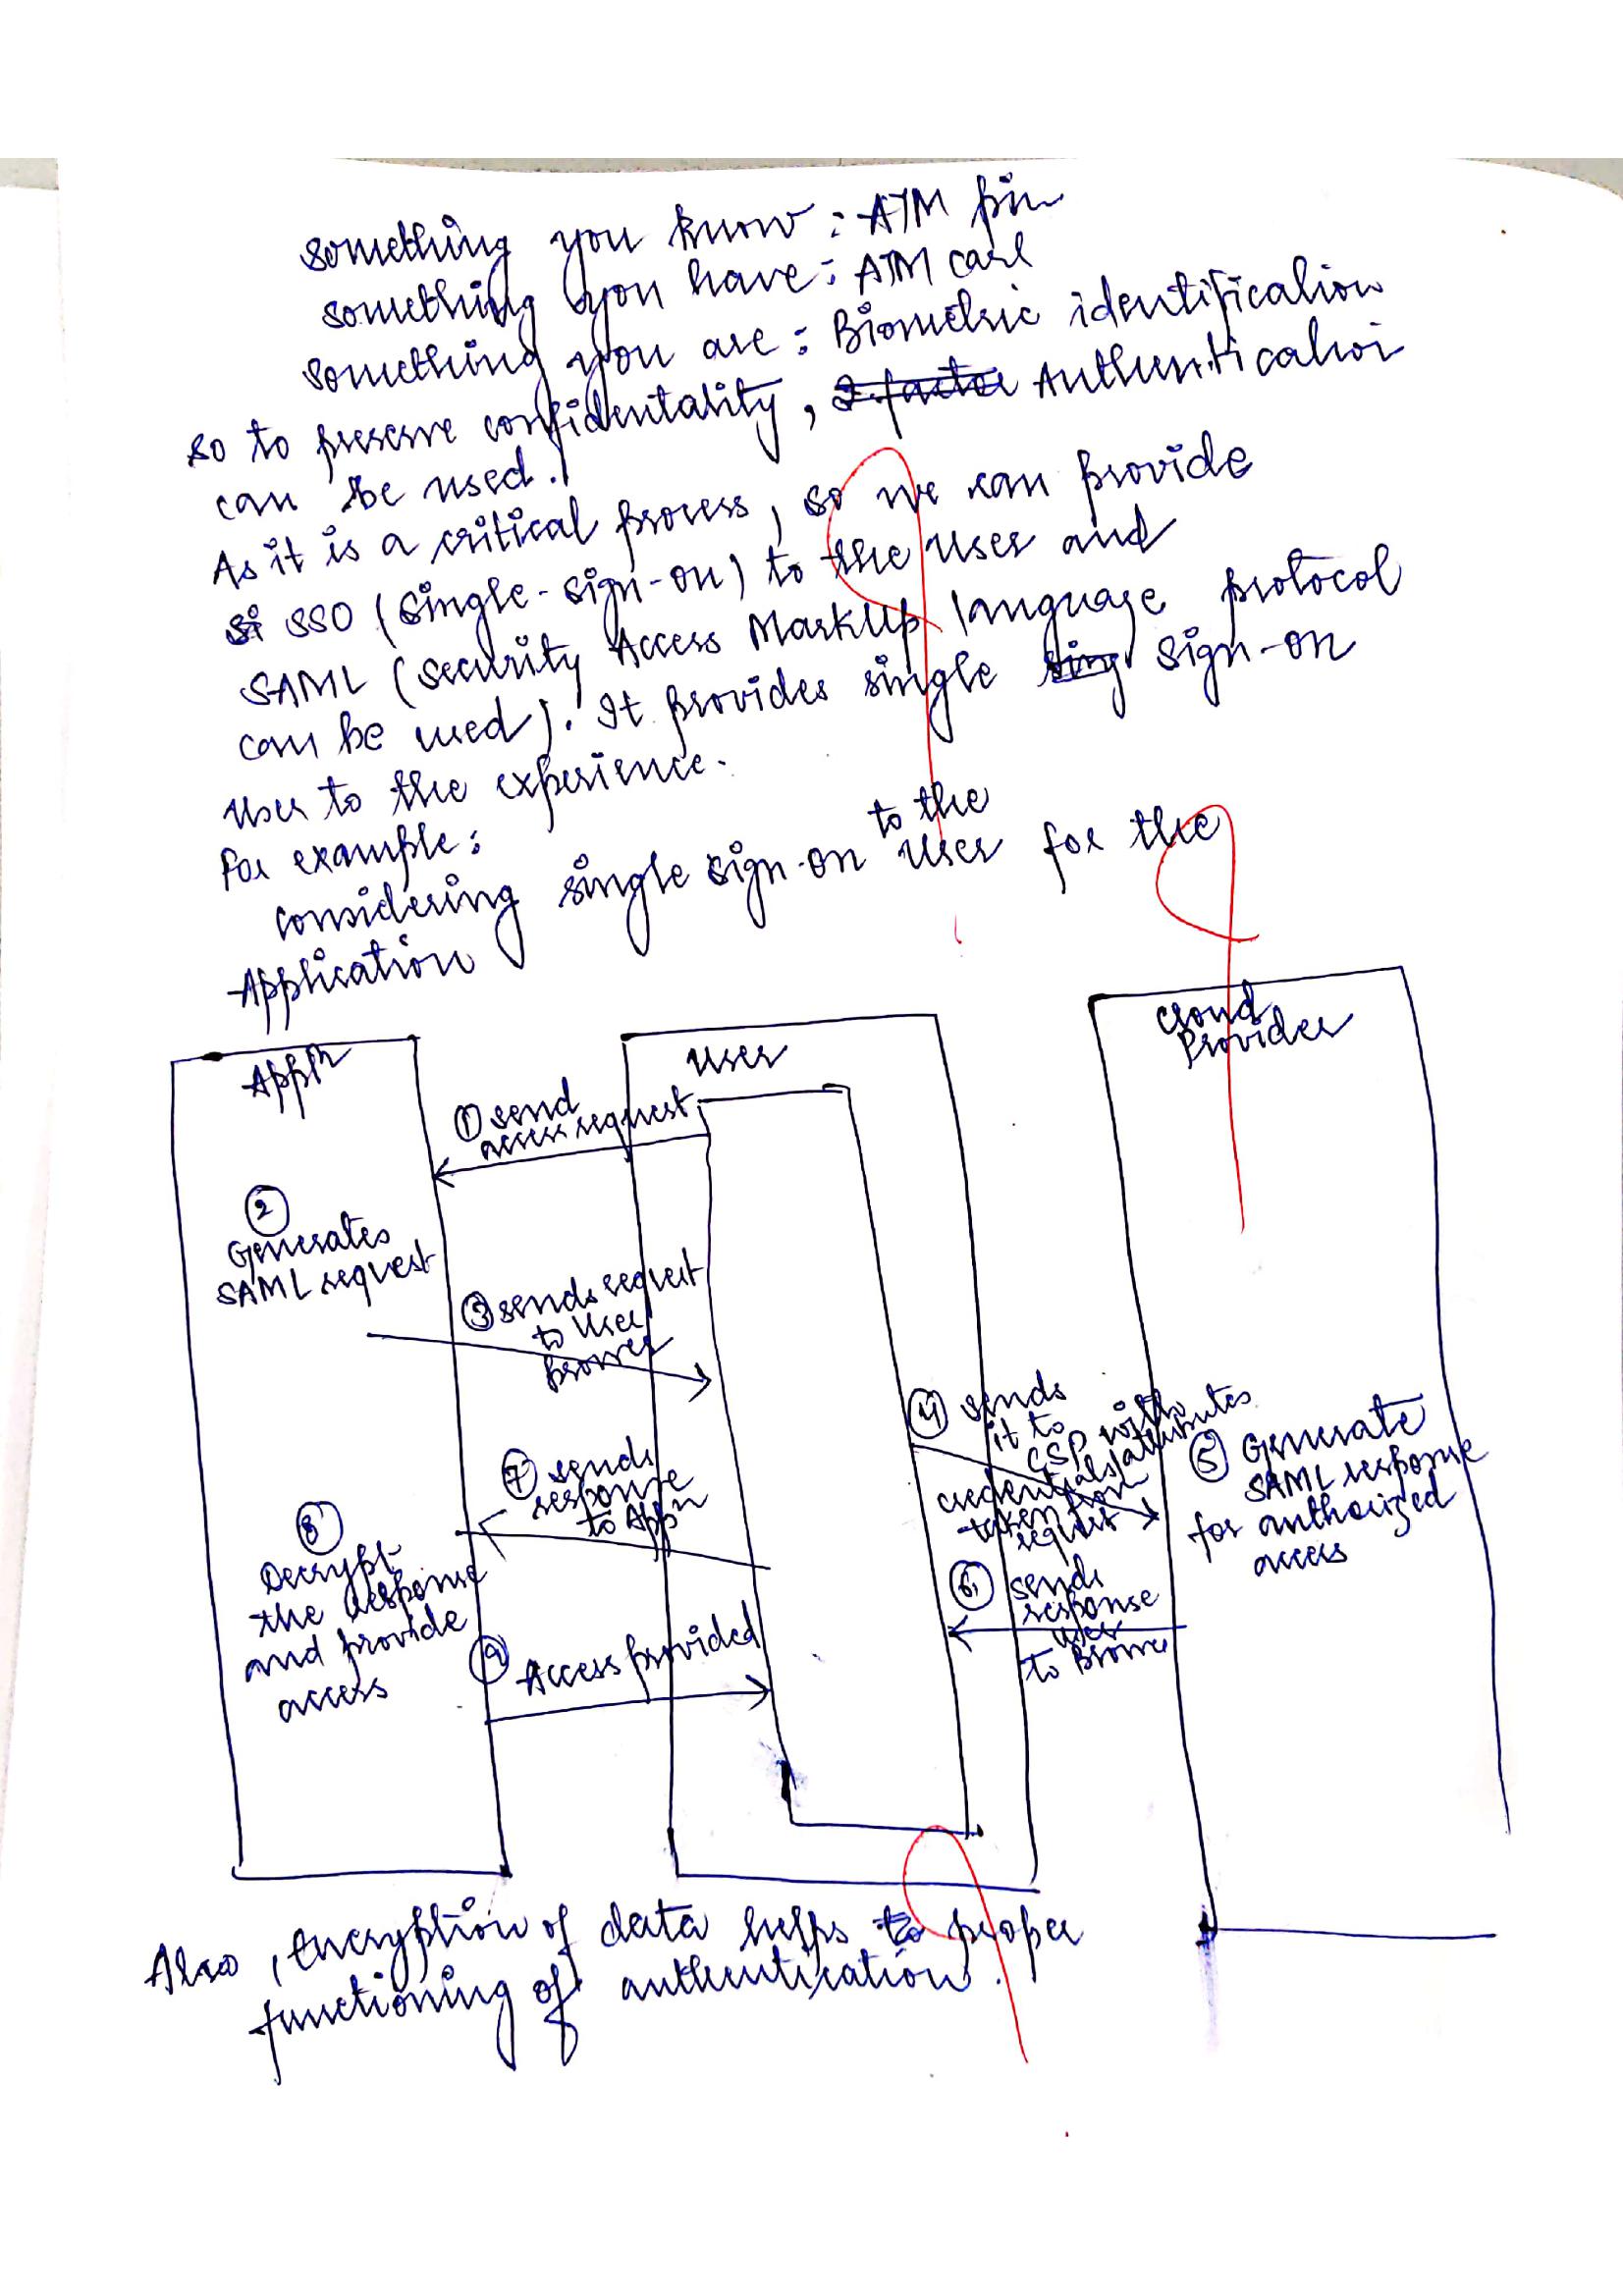 something you know : ATM pin
something you have : ATM card
something you are : Biometric identification
so to preserve confidentality, 2 factor Authentication
can be used.
As it is a critical process, so we can provide
si SSO (single-sign-on) to the user and
SAML (security Access MarkUp language protocol
can be used). It provides single sing sign-on
user to the experience.
for example:
considering single sign-on to the user for the
Application
Appln
user
cloud
Provider
① send
access request
②
Generates
SAML request
③ sends request
to user
browser
④ sends
it to
CSP with
credentials/attributes
taken from
request
⑤ Generate
SAML response
for authorized
access
⑥ sends
response
user
to Browser
⑦ sends
response
to Appn
⑧
Decrypt
the response
and provide
access
⑨ Access provided
Also, Encryption of data helps to proper
functioning of authentication.